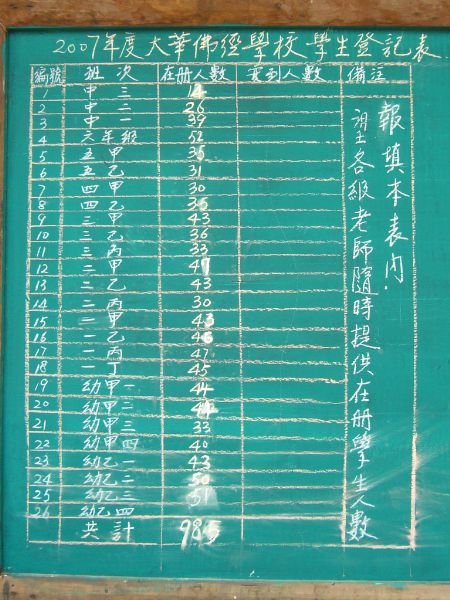 2007年度大華佛經學校學生登記表
編號 班次 在册人數 實到人數 備註
1 中三 14
2 中二 26
3 中一 39
4 六年級 52
5 五甲 35
6 五乙 31
7 四甲 30
8 四乙 35
9 三甲 43
10 三乙 36
11 三丙 33
12 二甲 47
13 二乙 43
14 二丙 30
15 一甲 43
16 一乙 46
17 一丙 47
18 一丁 45
19 幼甲一 44
20 幼甲二 44
21 幼甲三 33
22 幼甲四 40
23 幼乙一 43
24 幼乙二 50
25 幼乙三 51
26 幼乙四
共計 985
報填本表內
望各級老師隨時提供在册學生人數